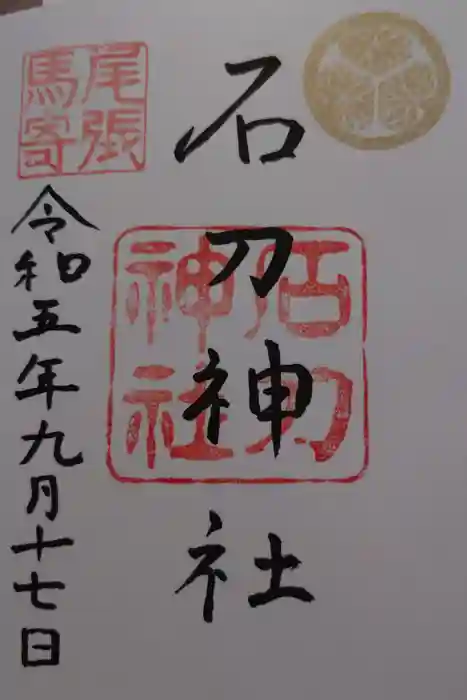 石刀神社
石刀神社
尾張馬寄
令和五年九月十七日